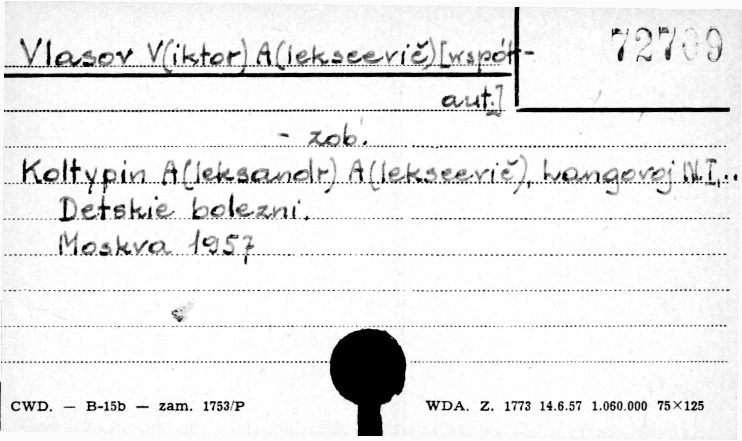 Vlasov V(iktor) A(lekseevič) [współ-
72709
aut.]
- zob.
Koltypin A(leksandr) A(lekseevič), Langovoj N.I,..
Detskie bolezni.
Moskva 1957
CWD. — B-15b — zam. 1753/P
WDA. Z. 1773 14.6.57 1.060.000 75×125